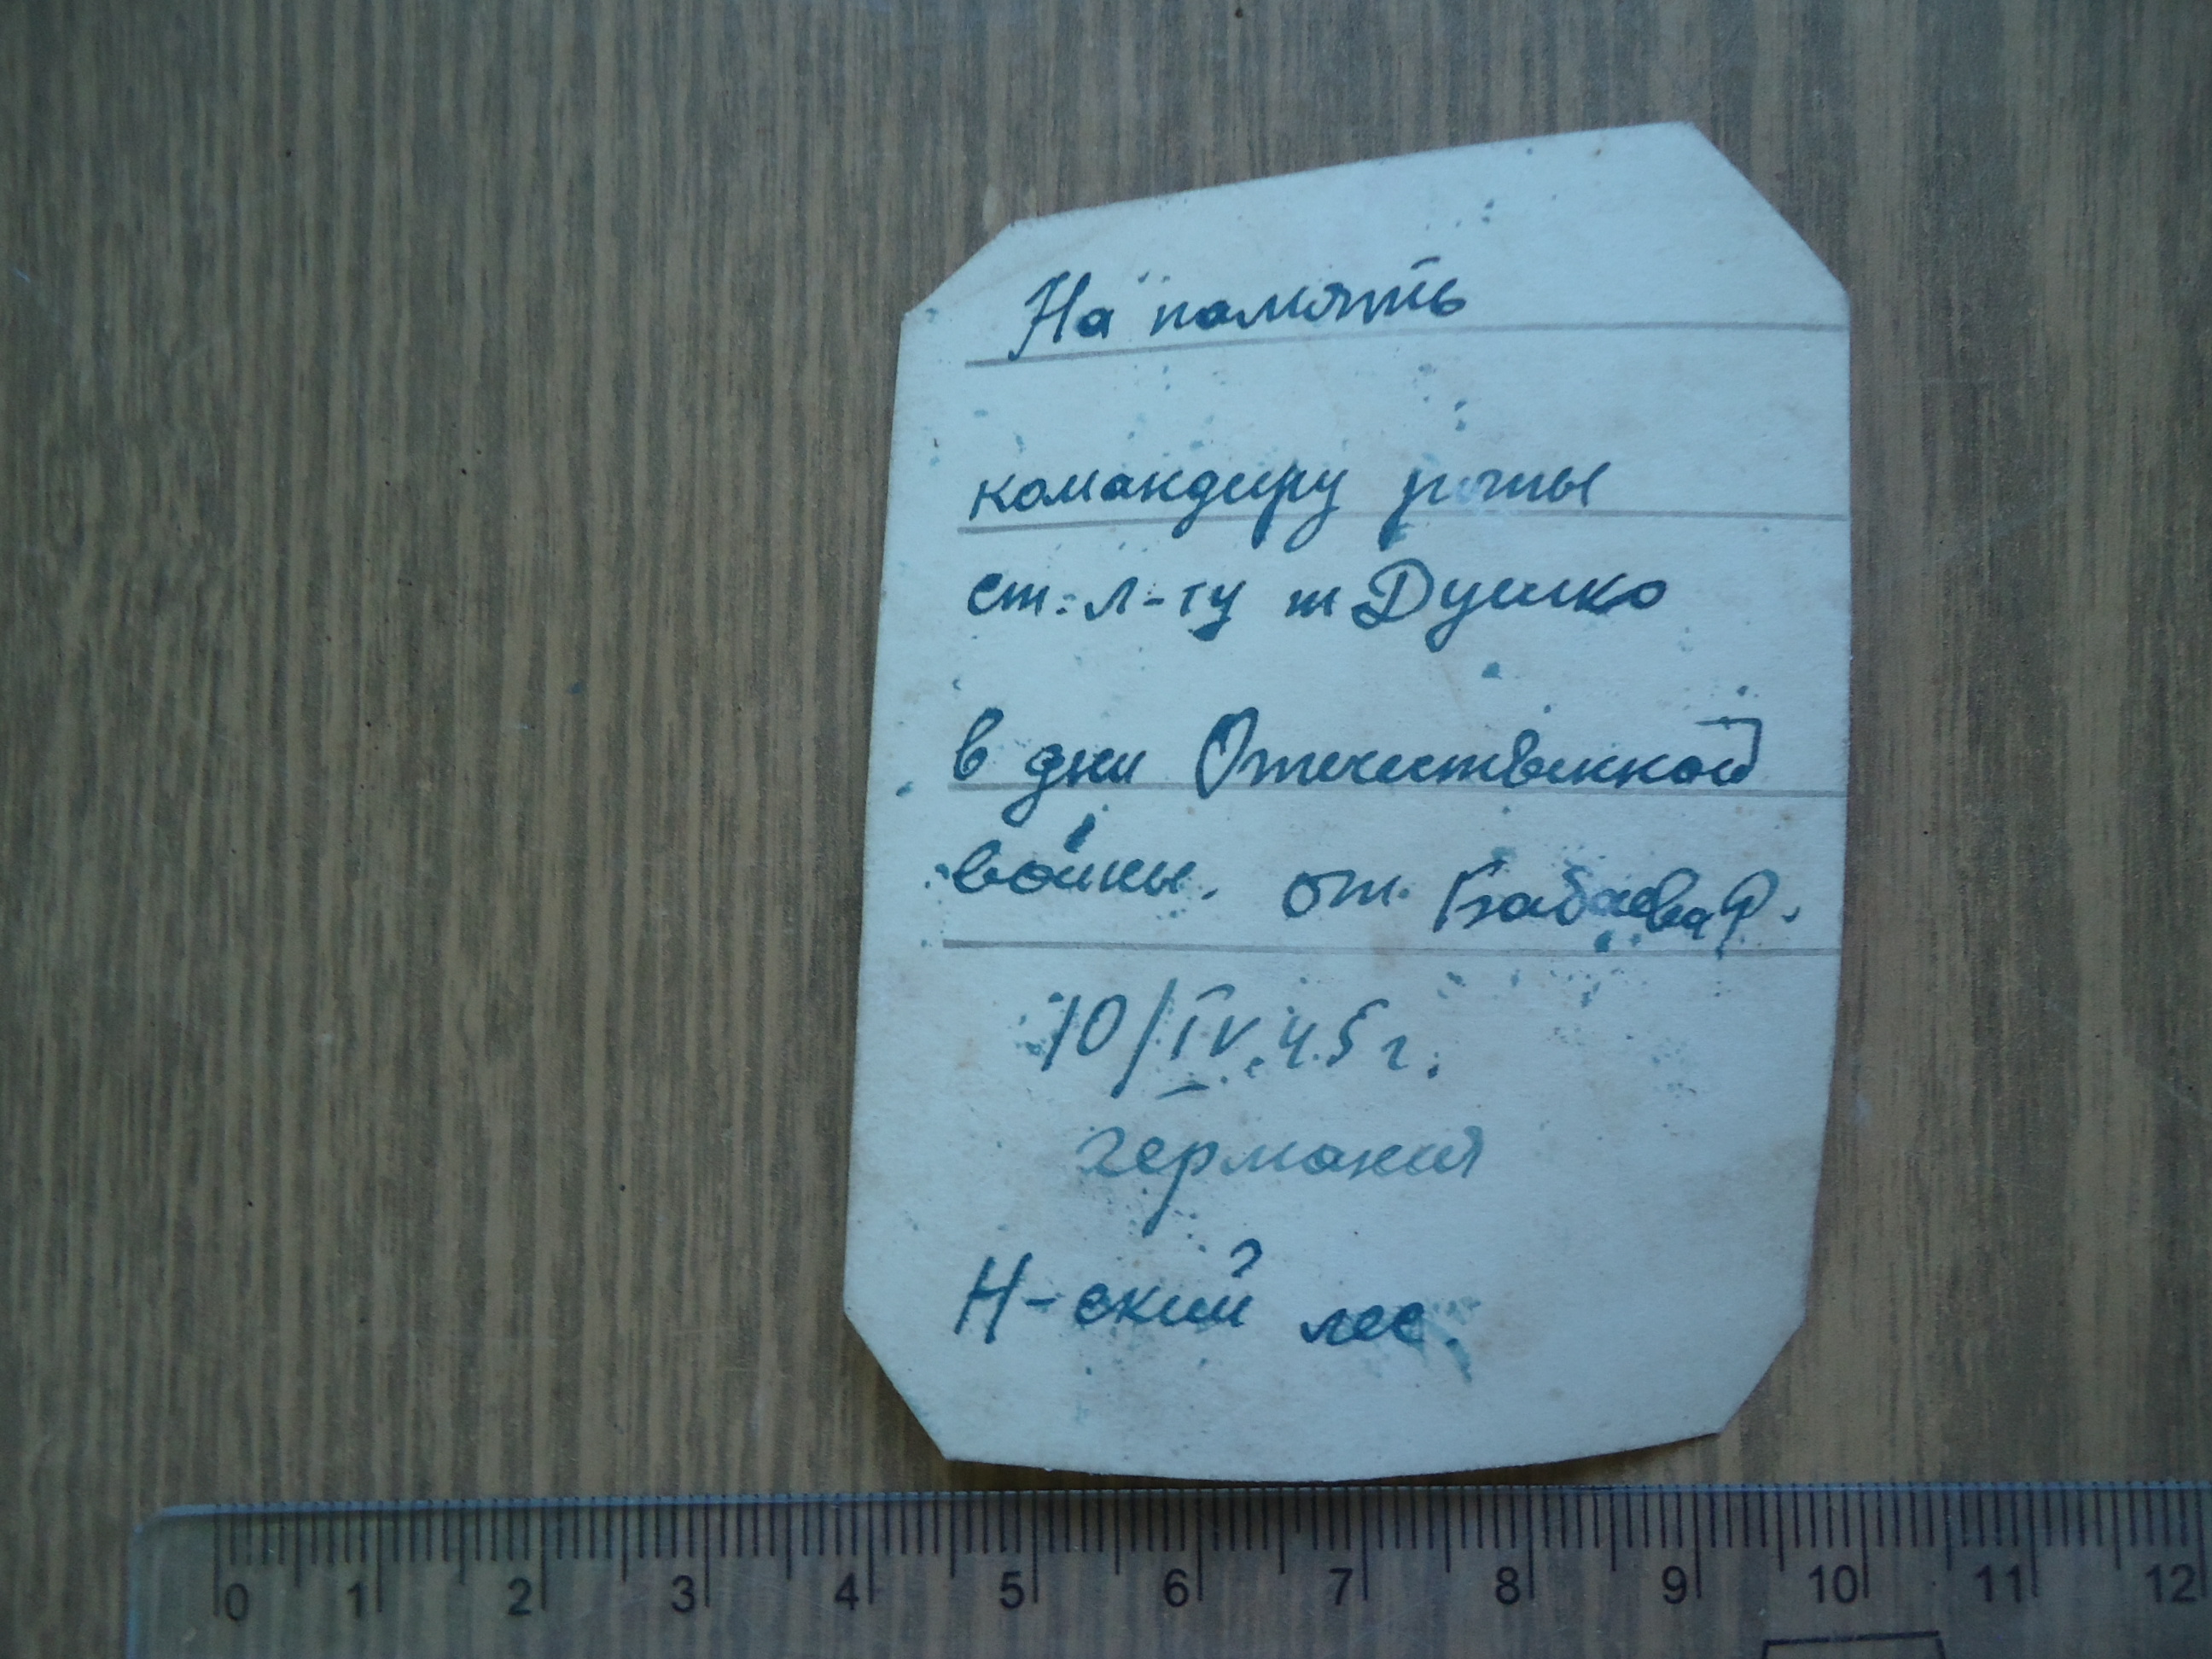 На память
командиру роты
ст. л-ту т Душко
в дни Отечественной
войны. от. Бабаева Р.
10/IV.45г.
германия
Н-ский лес.
0 1 2 3 4 5 6 7 8 9 10 11 12